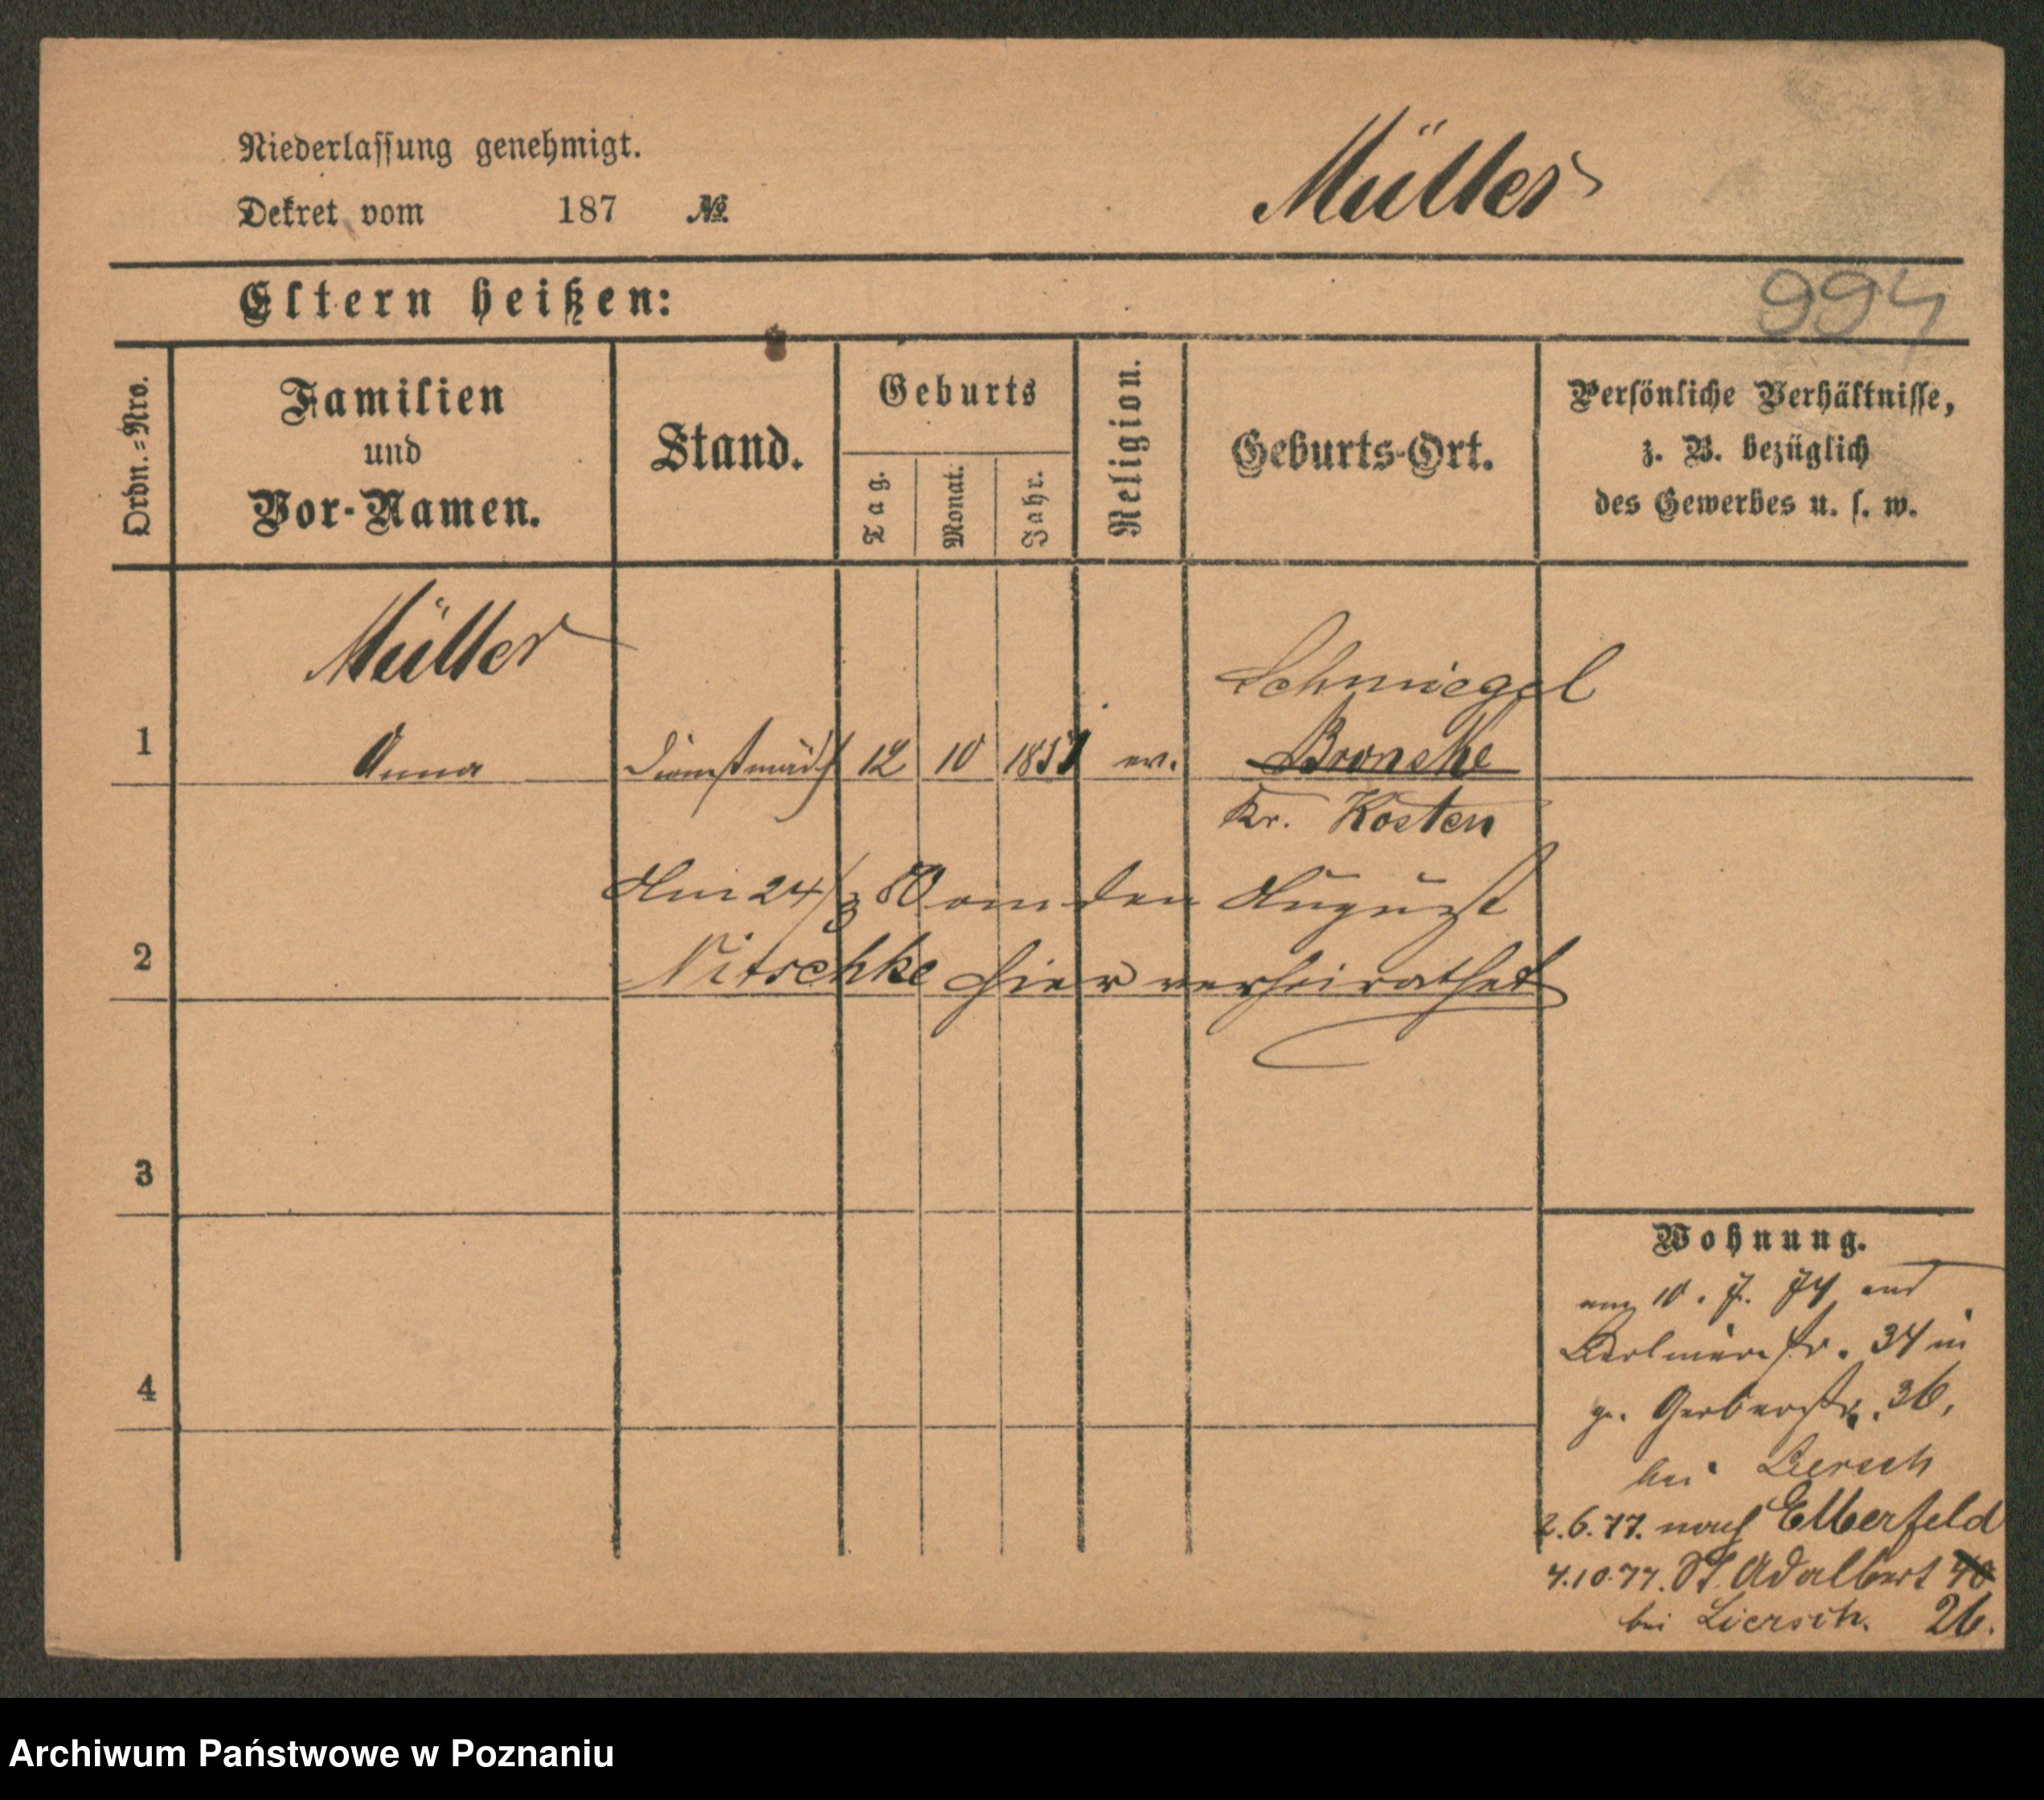 Niederlassung genehmigt.
Dekret vom 187 No
Müller
Eltern heißen:
994
Ordn.=Nro.
Familien
und
Vor-Namen.
Stand.
Geburts
Tag.
Monat.
Jahr.
Religion.
Geburts-Ort.
Persönliche Verhältnisse,
z. B. bezüglich
des Gewerbes u. s. w.
Müller
Schmiegel
1 Anna Dienstmädch 12 10 1851 ev. Bronske
Kr. Kosten
Am 24/3 80 an den August
2 Nitschke hier verheirathet
3
Wohnung.
am 10. 7. 74 aus
34 in
4
gr. Gerberstr. 36,
bei Liersch
2.6.77. nach Elberfeld
4.10.77. St. Adalbert 40
bei Liersch. 26.
Archiwum Państwowe w Poznaniu